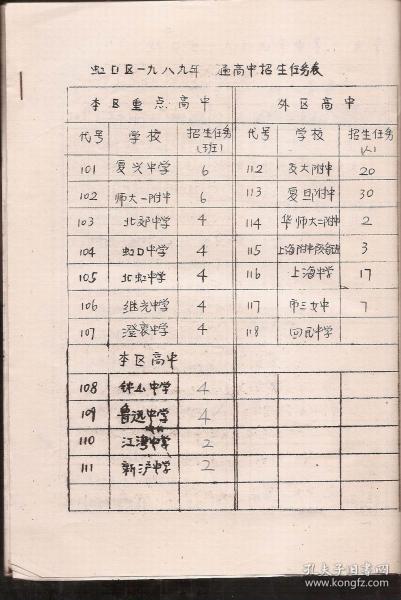 虹口区一九八九年 通高中招生任务表
本区重点高中 外区高中
代号 学校 招生任务(班) 代号 学校 招生任务(人)
101 复兴中学 6 112 交大附中 20
102 师大一附中 6 113 复旦附中 30
103 北郊中学 4 114 华师大二附中 2
104 虹口中学 4 115 上海附中 3
105 北虹中学 4 116 上海中学 17
106 继光中学 4 117 市三女中 7
107 澄衷中学 4 118 回民中学
本区高中
108 钟山中学 4
109 鲁迅中学 4
110 江湾中学 2
111 新沪中学 2
孔夫子旧书网
www.kongfz.com